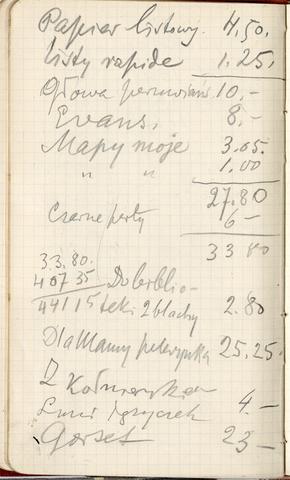 Papier listowy. 4.50.
listy rapide 1.25.
Głowa 10.–
Evans. 8.–
Mapy moje 3.05.
" " 1.00
27.80
Czarne perły 6–
33 80
33.80.
407 35
441 15 teki 2 blachy 2.80
Dla Mamy pelerynka 25.25
Z Kołnierzyków
4.–
Gorset 23–